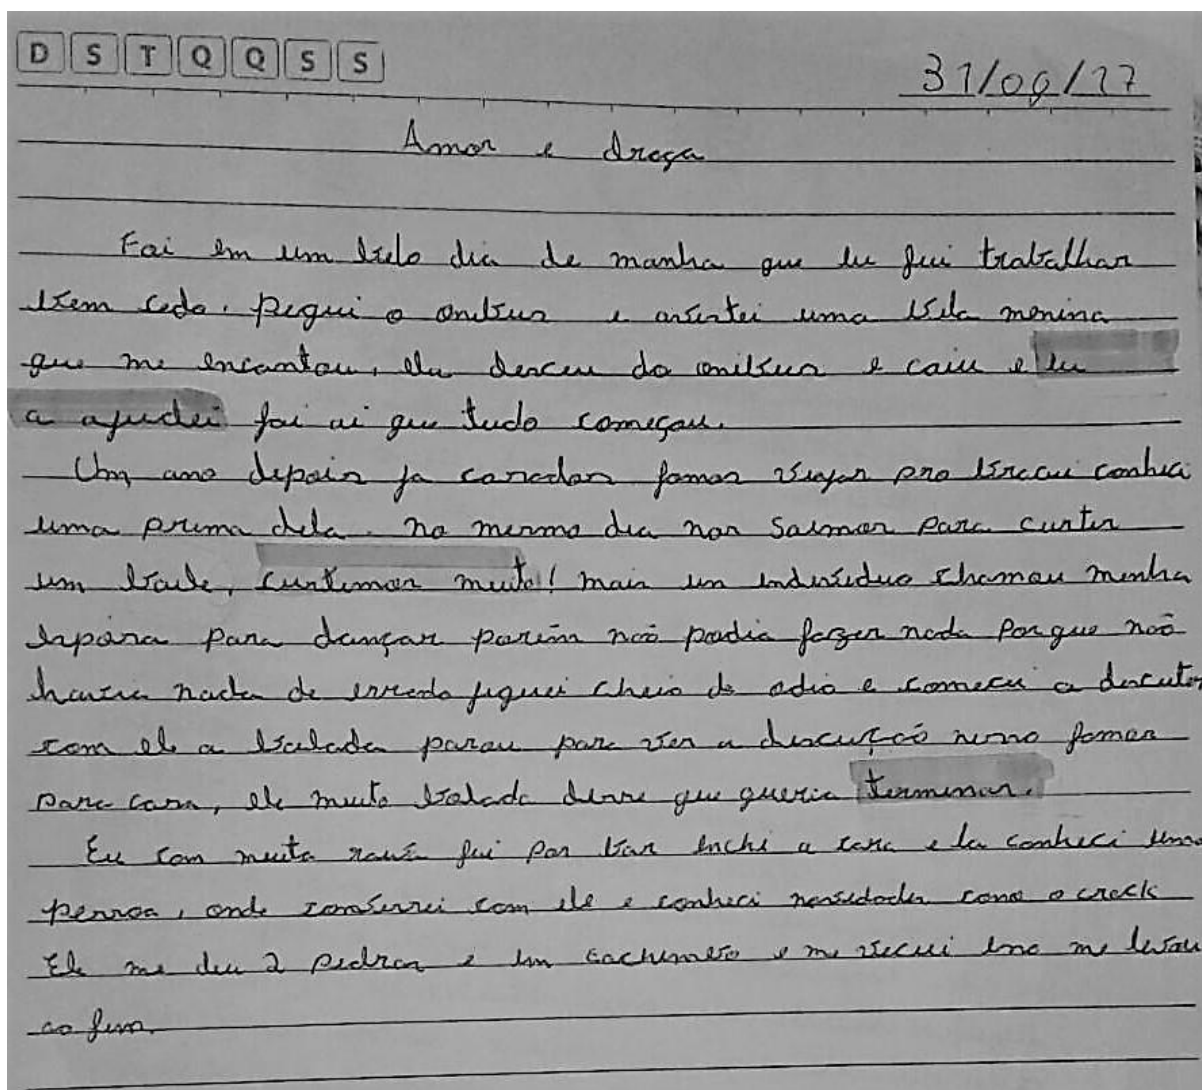 D S T Q Q S S
31/08/17
Amor e droga
Foi em um belo dia de manha que eu fui trabalhar
bem cedo. peguei o onibus e avistei uma bela menina
que me encantou, ela desceu do onibus e caiu e eu
a ajudei foi ai que tudo começou.
Um ano depois ja casados fomos viajar pro conheci
uma prima dela. no mesmo dia nos saimos para curtir
um baile, curtimos muito! mais um individuo chamou minha
esposa para dançar porém não podia fazer nada porque não
havia nada de errado fiquei cheio de odio e comecei a discutir
com ele a balada parou para ver a discução nisso fomos
para casa, ela muito bolada disse que queria terminar.
Eu com muita raiva fui por bar enchi a cara e la conheci uma
pessoa, onde conversei com ele e conheci novidades como o crack
Ele me deu 2 pedras e um cachimbo e me viciei isso me levou
ao fim.